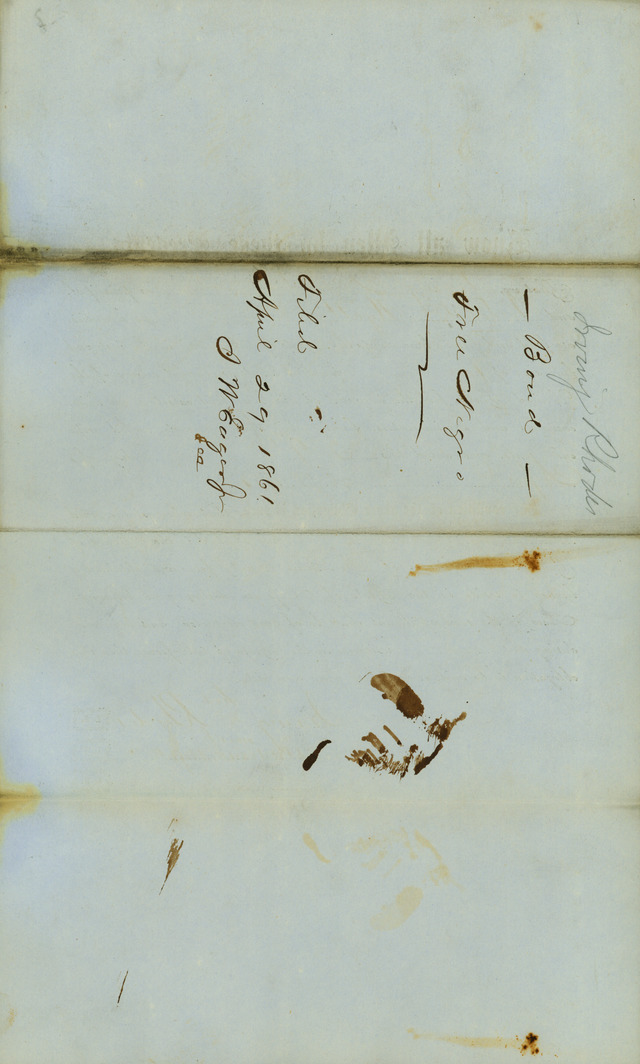 Irving Rhodes
— Bond —
Free Negro
Filed
April 29 1861